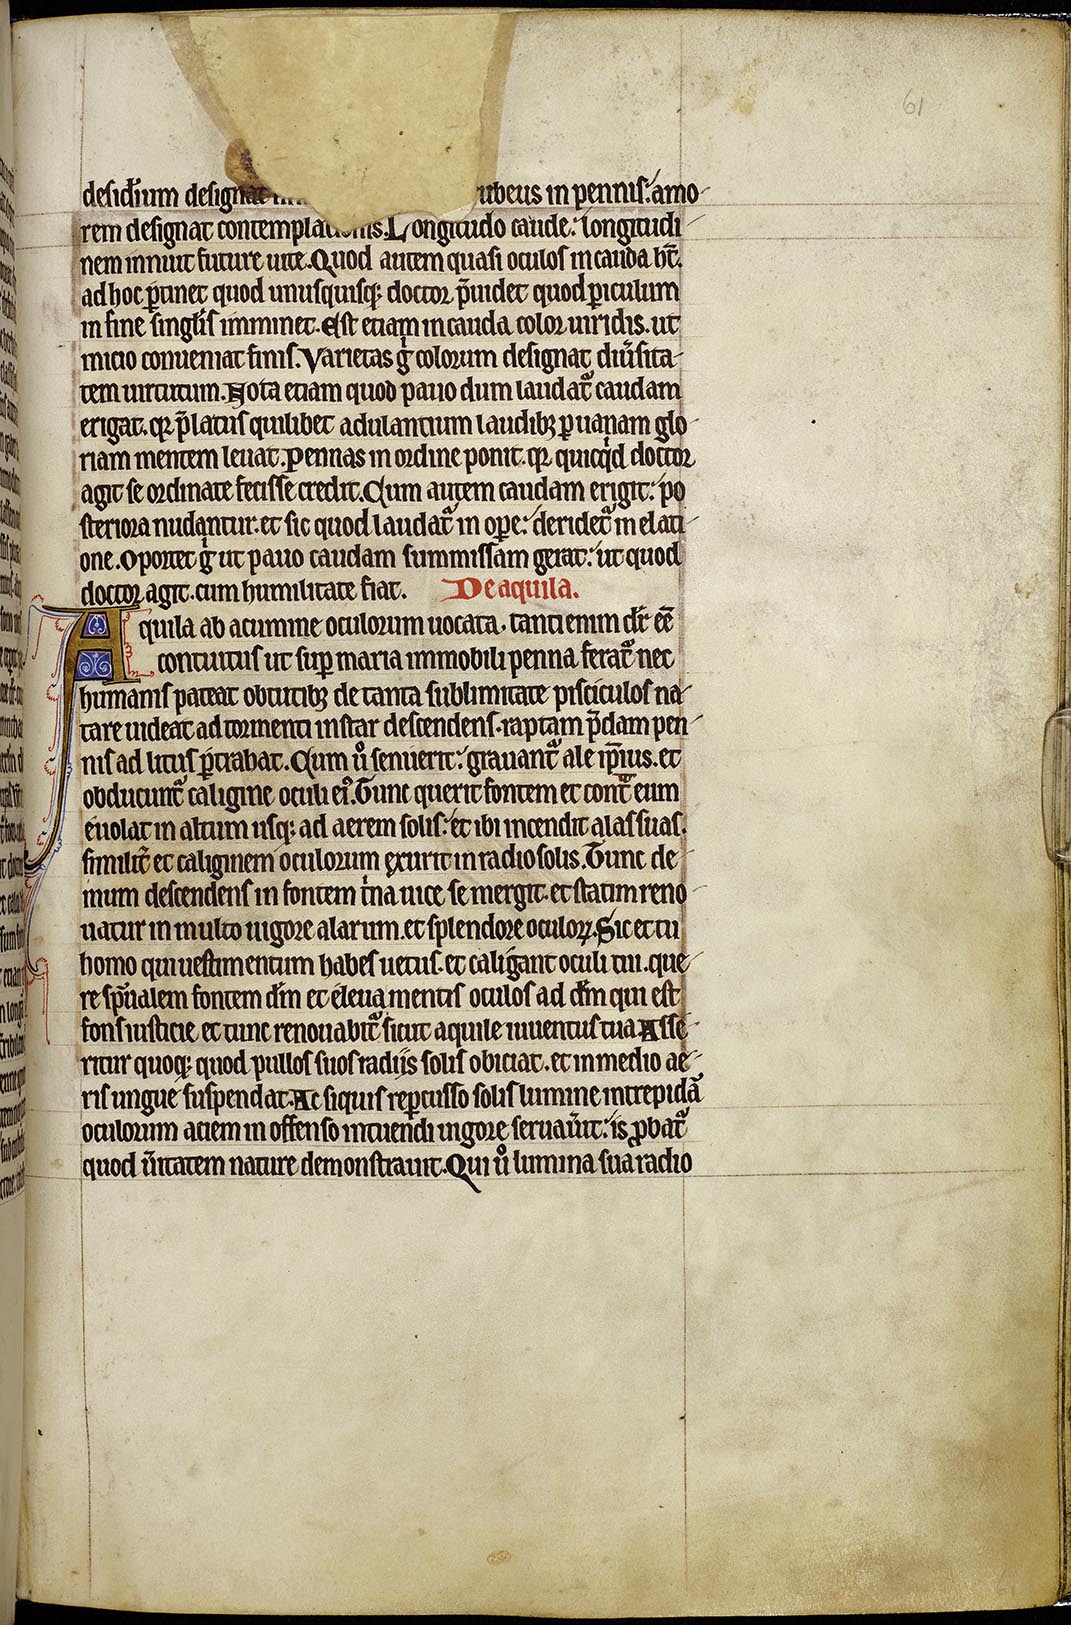 61
desid̅ium designat ubeus in pennis. amo-
rem designat contemplationis. Longitudo caude: longitudi-
nem innuit future uite. Quod autem quasi oculos in cauda ht̅.
ad hoc ꝑtinet quod unusquisq; doctor p̅uidet quod ꝑiculum
in fine singl̅is imminet. Est etiam in cauda color uiridis. ut
inicio conueniat finis. Varietas gͥ colorum designat diu̅sita-
tem uirtutum. Nota etiam quod pauo dum laudat᷑ caudam
erigat. qꝛ p̅latus quilibet adulantium laudibꝫ ꝑ uanam glo-
riam mentem leuat. Pennas in ordine ponit. qꝛ quicqͥd doctor
agit se ordinate fecisse credit. Cum autem caudam erigit: po
steriora nudantur. et sic quod laudat᷑ in oꝑe: deridet᷑ in elati-
one. Oportet gͥ ut pauo caudam summissam gerat: ut quod
doctor agit. cum humilitate fiat. De aquila.
Aquila ab acumine oculorum uocata. tanti enim dr̅ ee̅
contuitus ut suꝑ maria immobili penna ferat᷑ nec
humanis pateat obtutibꝫ de tanta sublimitate pisciculos na-
tare uideat ad tormenti instar descendens. raptam p̅dam pen-
nis ad litus ꝑtrahat. Cum uͦ senuerit: grauant᷑ ale ip̅ius. et
obducunt᷑ caligine oculi ei᷒. Tunc querit fontem et cont᷑ eum
euolat in altum usq; ad aerem solis: et ibi incendit alas suas.
similit̅ et caliginem oculorum exurit in radio solis. Tunc de-
mum descendens in fontem tͥna uice se mergit. et statim reno-
uatur in multo uigore alarum. et splendore oculoꝝ. Sic et tu
homo qui uestimentum habes uetus. et caligant oculi tui. que-
re sp̅ualem fontem dn̅i et eleua mentis oculos ad dn̅m qui est
fons iusticie. et tunc renouabit᷑ sicut aquile iuuentus tua. Asse-
ritur quoq; quod pullos suos radijs solis obiciat. et in medio ae-
ris ungue suspendat. Ac siquis reꝑcusso solis lumine intrepidā
oculorum aciem in offenso intuendi uigore seruau̅it: is ꝓbat᷑
quod u̅itatem nature demonstrauit. Qui uͦ lumina sua radio